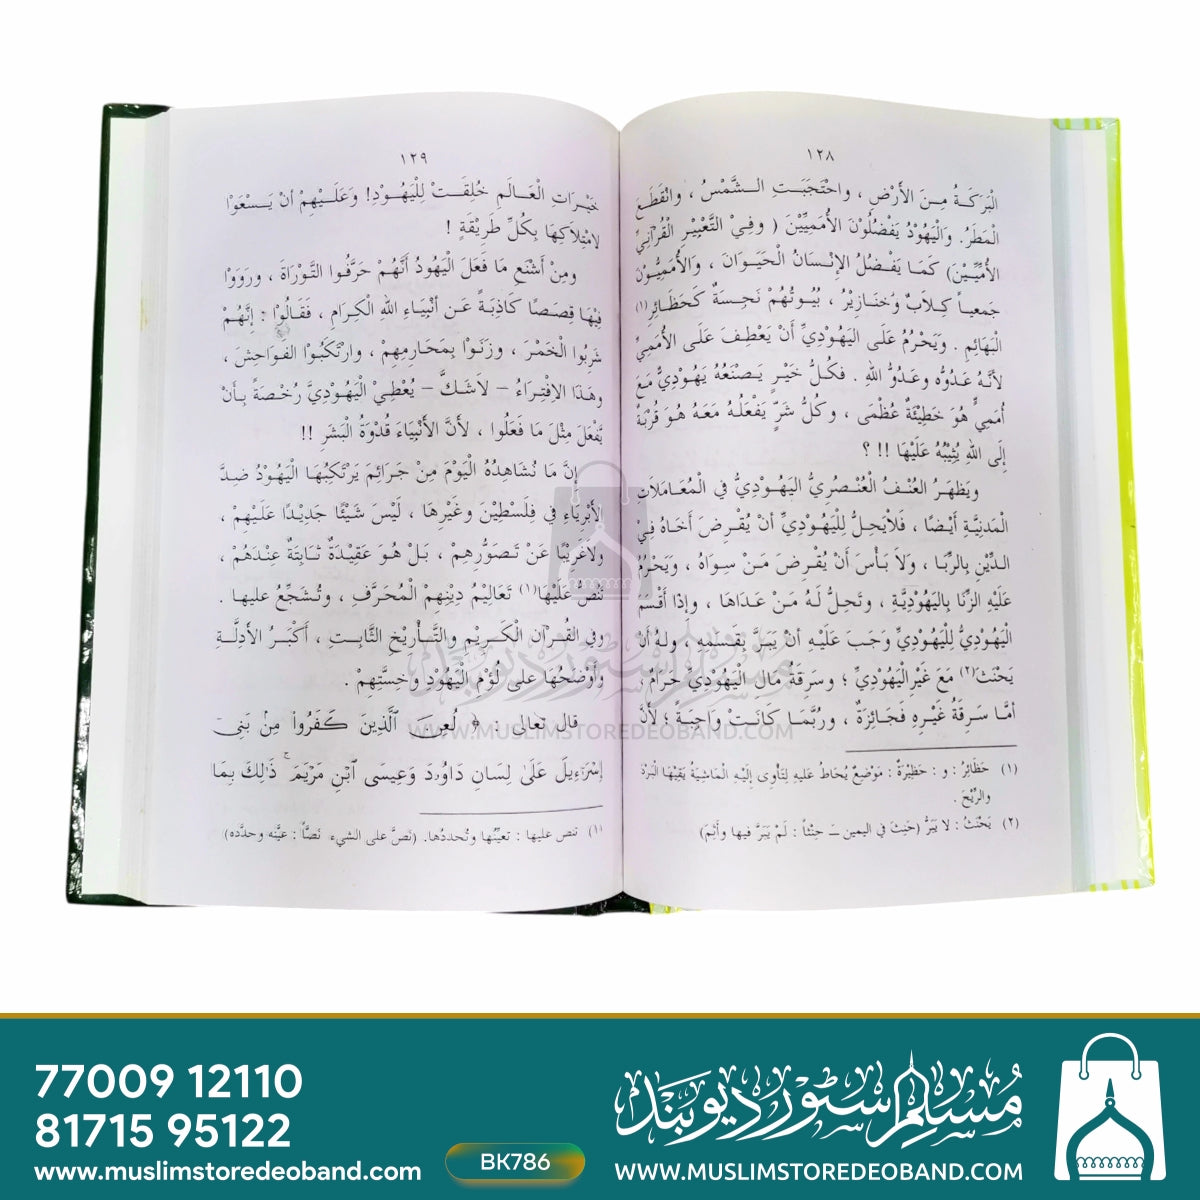 ١٢٨
الْبَرَكَةُ مِنَ الأَرْضِ ، واحْتَجَبَتِ الشَّمْسُ ، وانْقَطَعَ
الْمَطَرُ. وَالْيَهُودُ يَفْضُلُوْنَ الأُمَمِيِّيْنَ ( وفِيْ التَّعْبِيْرِ الْقُرْآنِيِّ
الأُمِّيِّيْنَ) كَمَا يَفْضُلُ الإنْسَانُ الْحَيَوَانَ ، وَالأُمَمِيُّوْنَ
جَمعياً كِلاَبٌ وخَنَازِيْرُ ، بُيُوتُهُمْ نَجِسَةٌ كَحَظَائِرِ(١)
الْبَهَائِمِ . ويَحْرُمُ عَلَى الْيَهُودِيِّ أَنْ يَعْطِفَ عَلَى الأُمَمِيِّ
لأنَّهُ عَدُوُّه وعَدُوُّ اللهِ . فكُلُّ خَيْرٍ يَصْنَعُهُ يَهُودِيٌّ مَعَ
أُمَمِيٍّ هُوَ خَطِيْئَةٌ عُظْمَى ، وكُلُّ شَرٍّ يَفْعَلُهُ مَعَهُ هُوَ قُرْبَةٌ
إلَى اللهِ يُثِيْبُهُ عَلَيْهَا !! ؟
ويَظْهَرُ العُنْفُ الْعُنْصُرِيُّ اليَهُودِيُّ في الْمُعَامَلَاتِ
الْمَدَنِيَّةِ أيْضًا ، فَلاَيَحِلُّ لِلْيَهُودِيِّ أنْ يُقْرِضَ أخَاهُ فِيْ
الدِّيْنِ بِالرِّبَا ، ولاَ بَأْسَ أَنْ يُقْرِضَ مَنْ سِوَاهُ ، ويَحْرُمُ
عَلَيْهِ الزِّنَا بِالْيَهُودِيَّةِ ، وتَحِلُّ لَهُ مَنْ عَدَاهَا ، وإذا أَقْسَمَ
الْيَهُودِيُّ لِلْيَهُودِيِّ وَجَبَ عَلَيْهِ أنْ يَبَرَّ بِقَسَمِهِ ، ولهُ أنْ
يَحْنَثَ(٢) مَعَ غَيْرِالْيَهُودِيِّ ؛ وسَرِقَةُ مَالِ الْيَهُودِيِّ حَرَامٌ ؛
أمَّا سَرِقَةُ غَيْرِهِ فَجَائِزَةٌ ، ورُبَّمَا كَانَتْ وَاجِبَةً ؛ لأَنَّ
(١) حَظَائِرُ : و : حَظِيْرَةٌ : مَوْضِعٌ يُحَاطُ عَلَيهِ لِتَأْوِى إلَيْهِ الْمَاشِيَةُ يَقِيْهَا الْبَرْدَ
والرِّيْحَ .
(٢) يَحْنَثُ : لا يَبَرُّ (حَنِثَ في اليمين – حِنْثاً : لَمْ يَبَرَّ فيها وأثِمَ)
١٢٩
خَيْرَاتِ الْعَالَمِ خُلِقَتْ لِلْيَهُودِ! وَعَلَيْهِمْ أنْ يَسْعَوْا
لامْتِلاَكِهَا بِكُلِّ طَرِيْقَةٍ !
ومِنْ أشْنَعِ مَا فَعَلَ الْيَهُودُ أنَّهُمْ حَرَّفُوا التَّوْرَاةَ ، ورَوَوْا
فِيْهَا قِصَصًا كَاذِبَةً عَنِ أنْبِيَاءِ اللهِ الْكِرَامِ ، فَقَالُوْا : إنَّهُمْ
شَرِبُوا الْخَمْرَ ، وزَنَوْا بِمَحَارِمِهِمْ ، وارْتَكَبُوْا الفَوَاحِشَ ،
وهَذَا الاِفْتِرَاءُ – لاَشَكَّ – يُعْطِيْ الْيَهُودِيَّ رُخْصَةً بِأنْ
يَفْعَلَ مِثْلَ مَا فَعَلُوا ، لأَنَّ الأَنْبِيَاءَ قُدْوَةُ الْبَشَرِ !!
إنَّ مَا نُشَاهِدُهُ الْيَوْمَ مِنْ جَرَائِمَ يَرْتَكِبُهَا الْيَهُوْدُ ضِدَّ
الأَبْرِيَاءِ فِي فِلَسْطِيْنَ وغَيْرِهَا ، لَيْسَ شَيْئًا جَدِيْدًا عَلَيْهِمْ ،
ولاغَرِيْبًا عَنْ تَصَوُّرِهِمْ ، بَلْ هُوَ عَقِيْدَةٌ ثَابِتَةٌ عِنْدَهُمْ ،
تَنُصُّ عَلَيْهَا(١) تَعَالِيْمُ دِيْنِهِمْ الْمُحَرَّفِ ، وتُشَجِّعُ عليها .
وفي القُرْآنِ الْكَرِيْمِ والتَّأْرِيْخِ الثَّابِتِ ، أَكْبَرُ الأدِلَّةِ
وَأوْضَحُهَا على لُؤْمِ الْيَهُوْدِ وَخِسَّتِهِمْ .
قال تعالى : ﴿ لُعِنَ ٱلَّذِينَ كَفَرُوا۟ مِنۢ بَنِىٓ
إِسْرَٰٓءِيلَ عَلَىٰ لِسَانِ دَاوُۥدَ وَعِيسَى ٱبْنِ مَرْيَمَ ۚ ذَٰلِكَ بِمَا
(١) تنص عليها : تعيِّنُها وتُحددُها. (نَصَّ على الشيء نَصًّا : عيَّنه وحدَّده)
مسلم اسٹور دیوبند
WWW.MUSLIMSTOREDEOBAND.COM
77009 12110
81715 95122
www.muslimstoredeoband.com
BK786
مسلم اسٹور دیوبند
WWW.MUSLIMSTOREDEOBAND.COM